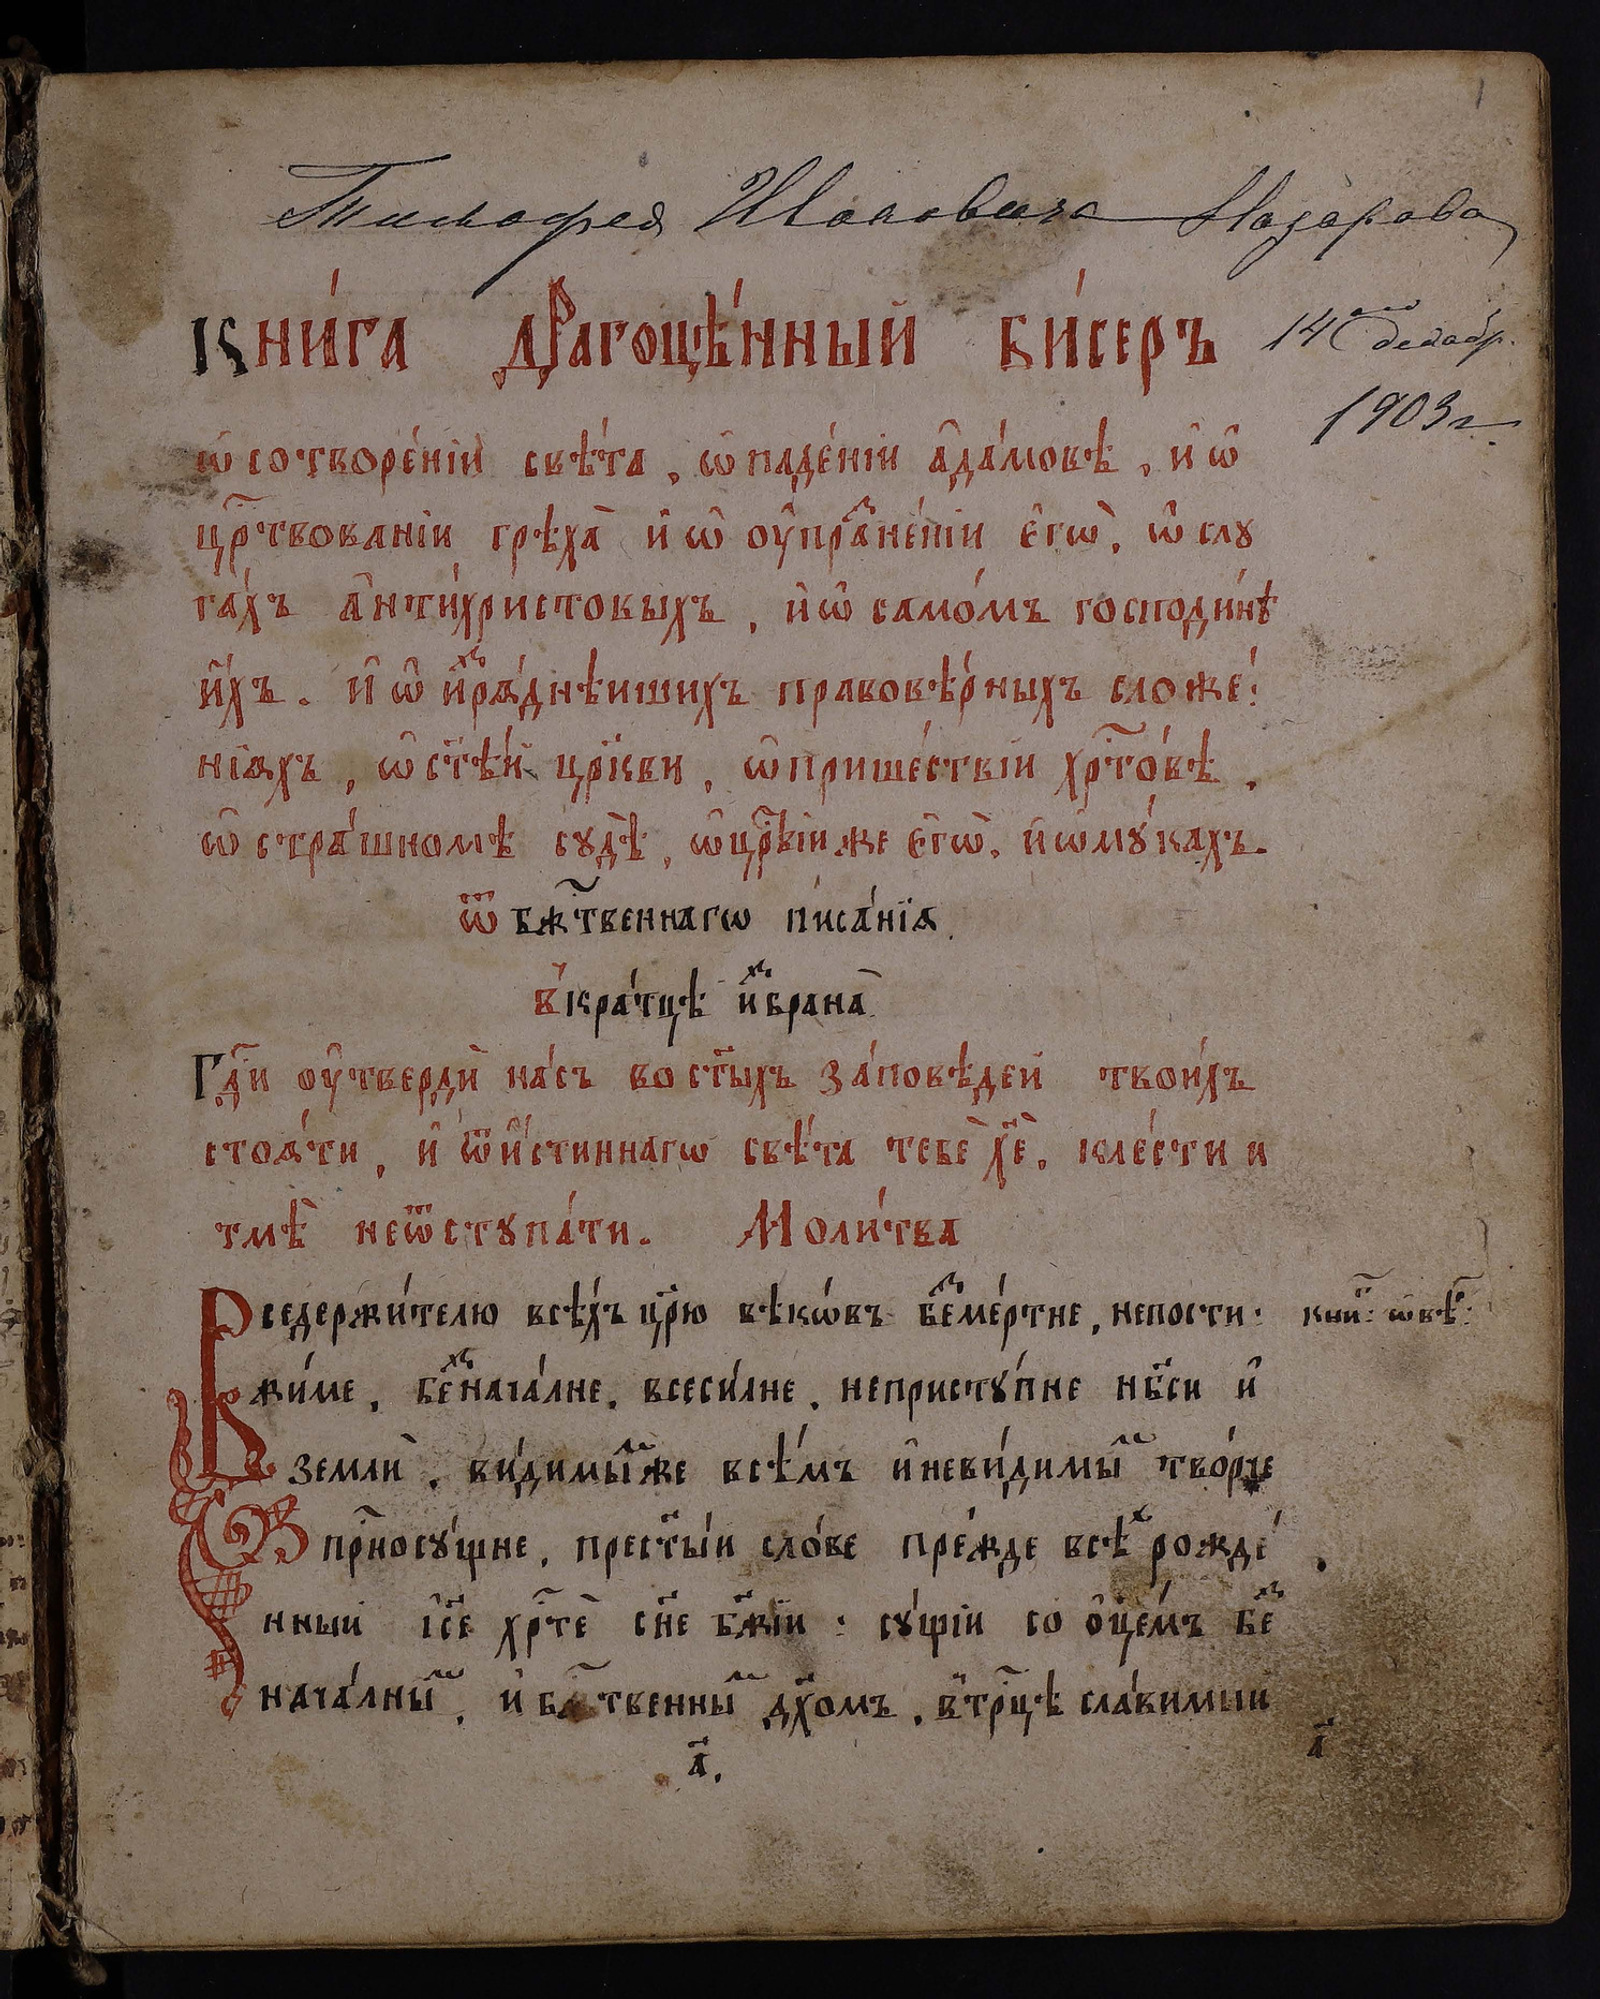 1
Тимофея Ивановича Назарова
Кни́га драгоцѣ́нный би́серъ
14го декабр.
1903 г.
ѡ҆ сотворе́нїи свѣ́та, ѡ҆ паде́нїи а҆да́мовѣ, и҆ ѡ҆
цр҃твованїи грѣха̀ и҆ ѡ҆ оу҆праⷥне́нїи є҆гѡ̀, ѡ҆ слꙋ
га́хъ а҆нти́христовыхъ, и҆ ѡ҆ само́мъ господи́нѣ
и҆́хъ. И҆ ѡ҆ и҆ⷥрѧ́днѣишихъ правовѣ́рныхъ сложе́:
нїѧхъ, ѡ҆ ст҃ѣ́й цр҃кви, ѡ҆ прише́ствїи хрⷭ҇то́вѣ,
ѡ҆ стра́шномъ сꙋдѣ̀, ѡ҆ црⷭ҇твїи же є҆гѡ̀, и҆ ѡ҆ мꙋ́кахъ.
ѿ бж҃твеннагѡ писа́нїѧ.
в̾кра́тцѣ и҆ⷥбрана̀
Гдⷭ҇и оу҆твердѝ на́съ во ст҃ыхъ за́повѣдей твои́хъ
стоѧ́ти, и҆ ѿ и҆́стиннагѡ свѣ́та тебѐ хⷭ҇ѐ, кле́сти и
тмѣ̀ не ѿстꙋпа́ти. Моли́тва
Вседержи́телю всѣ́хъ цр҃ю вѣкѡ́въ беⷥме́ртне, непости: кни҃: ѡ҆ вѣ҃:
жи́ме, беⷥнача́лне, всеси́лне, непристꙋ́пне нб҃си и҆
землѝ, ви́димыⷨже всѣ́мъ и҆ неви́димыⷨ тво́рче
прⷭ҇носꙋ́щне, прест҃ы́и сло́ве пре́жде всѣⷯ рожде́
нный і҆с҃е хрⷭ҇тѐ сн҃е бж҃їи: сꙋ́щїи со ѻ҆ц҃е́мъ беⷥ
нача́лныⷨ, и҆ бж҃твенныⷨ дх҃омъ, в̾ трⷪ҇цѣ сла́вимыи
а҃.
а҃